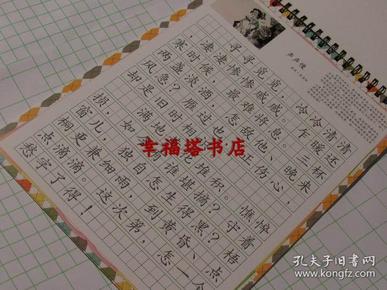 声声慢
寻寻觅觅，冷冷清清，
凄凄惨惨戚戚。乍暖还
寒时候，最难将息。三杯
两盏淡酒，怎敌他、晚来
风急？雁过也，正伤心，
却是旧时相识。
满地黄花堆积。憔悴
损，如今有谁堪摘？守着
窗儿，独自怎生得黑？梧
桐更兼细雨，到黄昏、点
点滴滴。这次第，怎一个
愁字了得！
幸福塔书店
孔夫子旧书网